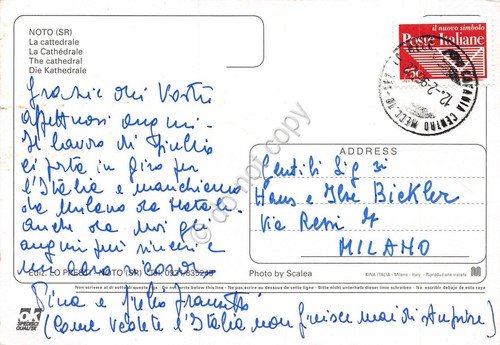 NOTO (SR)
La cattedrale
La Cathédrale
The cathedral
Die Kathedrale
il nuovo simbolo
Poste Italiane
750
CATANIA CENTRO MECC.
12.-2-96
Grazie dei Vostri
affettuosi auguri.
Il lavoro di Giulio
ci porta in giro per
l'Italia e manchiamo
da Milano da Natale.
Anche da noi gli
auguri più sinceri e
un caro ricordo
ADDRESS
Gentili Sig.
Hans e Ilse Bickler
Via 4
MILANO
© do not copy
Ediz. LO PRESTI - NOTO (SR) Tel. 0931/835249
Photo by Scalea
KINA ITALIA - Milano - Italy - Riproduzione vietata
Non scrivere al di sotto di questa linea - Please don't write below this line - Bitte nicht unterhalb dieser linien schreiben - No escribir debajo de esta raya
Pina e Giulio
(Come vedete l'Italia non finisce mai di stupire)
OK
SPEDISCI
QUALITA'